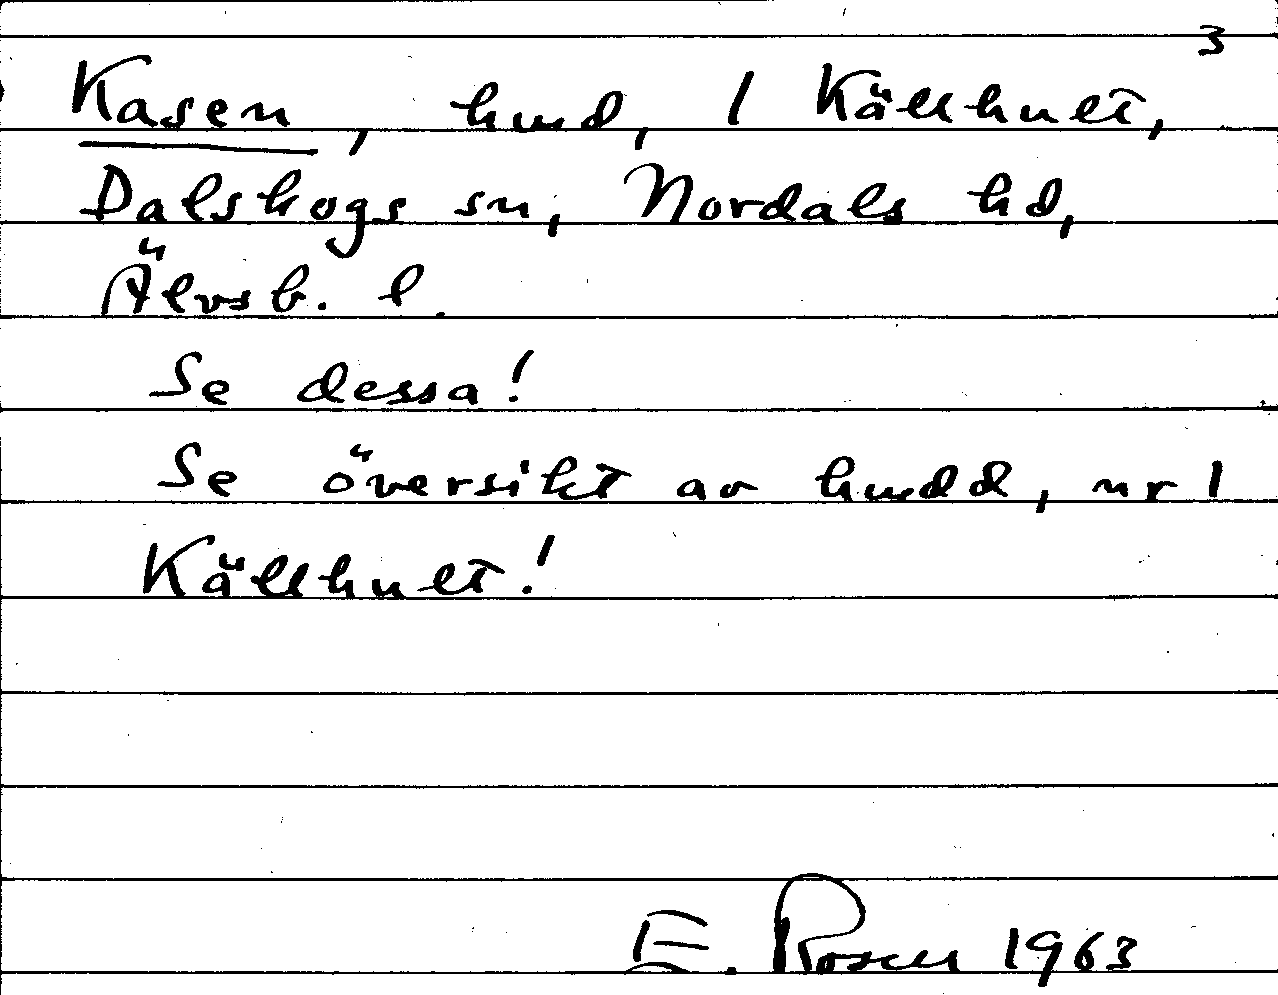 3
Kasen, hmd, 1 Källhult,
Dalskogs sn, Nordals hd,
Älvsb. l.
Se dessa!
Se översikt av hmdd, nr 1
Källhult!
E. Rosen 1963